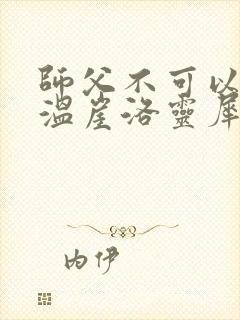 師父不可以
溫崖洛靈犀
内伊